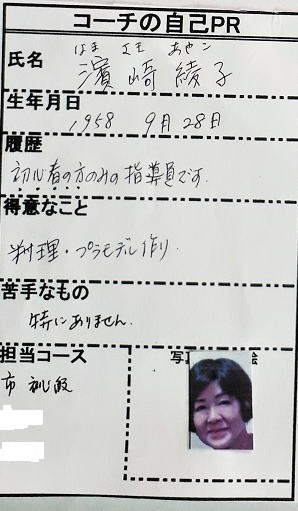 コーチの自己PR
はま さき あやこ
氏名 濱崎綾子
生年月日
1958 9月28日
履歴
初心者の方のみの指導員です.
得意なこと
料理・プラモデル作り.
苦手なもの
特にありません.
担当コース
写 絵
市